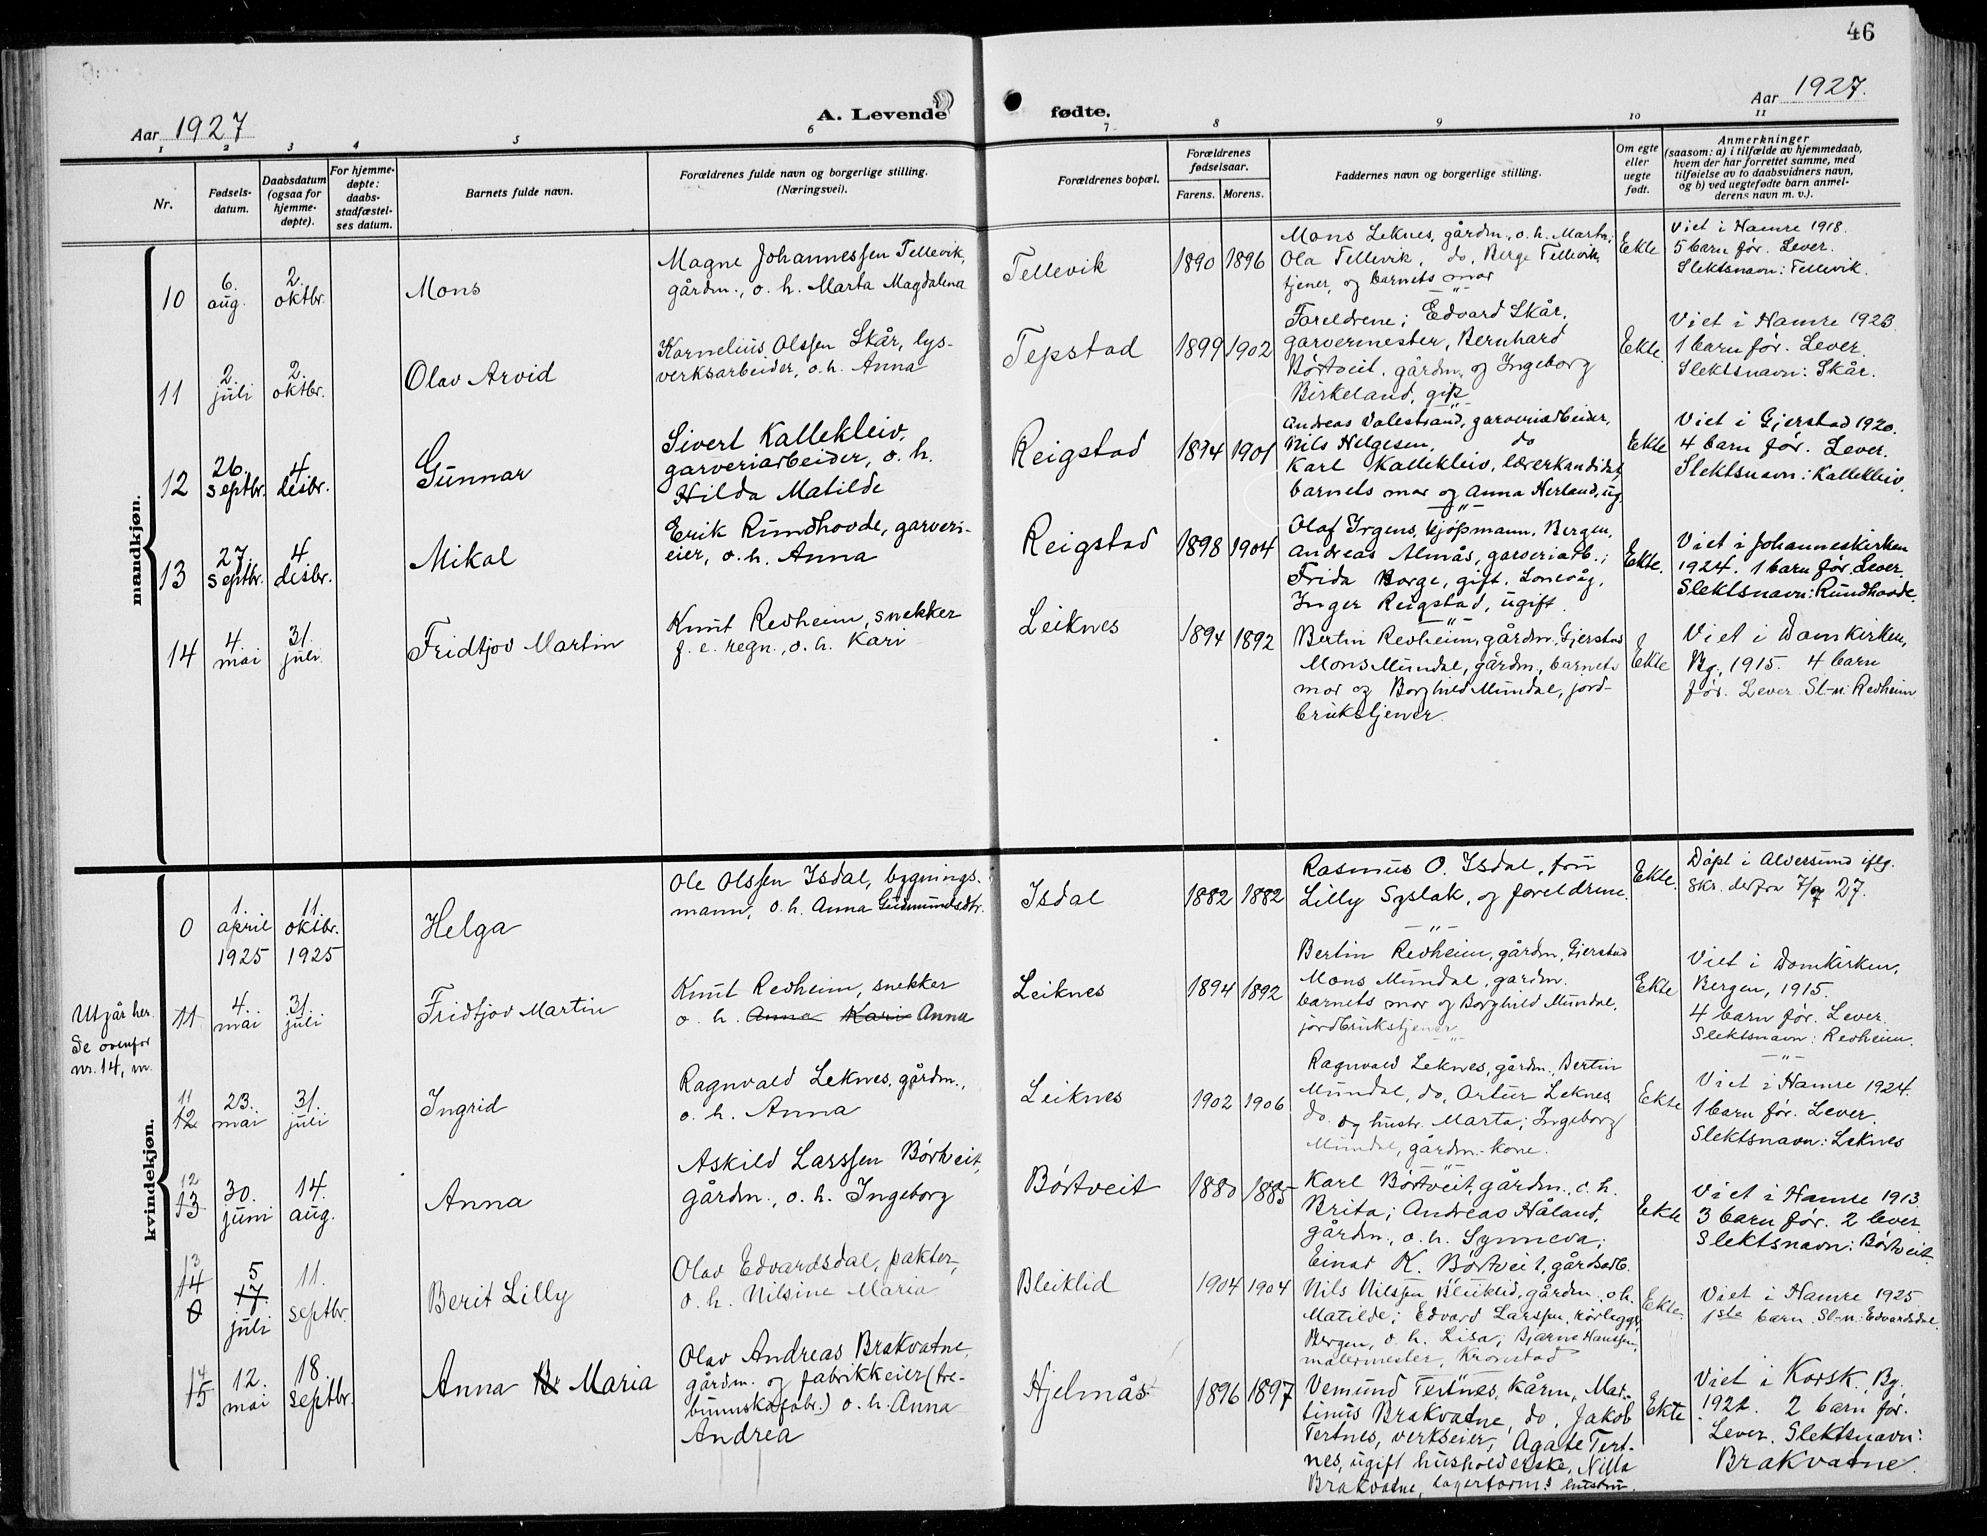 46
Aar 1927
A. Levende fødte.
Aar 1927.
1 2 3 4 5 6 7 8 9 10 11
Nr.
Fødsels-
datum.
Daabsdatum
(ogsaa for
hjemme-
døpte).
For hjemme-
døpte:
daabs-
stadfæstel-
ses datum.
Barnets fulde navn.
Forældrenes fulde navn og borgerlige stilling.
(Næringsvei).
Forældrenes bopæl.
Forældrenes
fødselsaar.
Farens. Morens.
Faddernes navn og borgerlige stilling.
Om egte
eller
uegte
født.
Anmerkninger
(saasom: a) i tilfælde av hjemmedaab,
hvem der har forrettet samme, med
tilføielse av to daabsvidners navn,
og b) ved uegtefødte barn anmel-
derens navn m. v.).
mandkjøn.
10
6.
aug.
2.
oktbr.
Mons
Magne Johannessen Tellevik,
gårdm., o. h. Marta Magdalena
Tellevik
1890 1896
Mons Leknes, gårdm., o. h. Marta;
Ola Tellevik, do, Berge Tellevik,
tjener, og barnets mor
Ekte
Viet i Hamre 1918.
5 barn før. Lever.
Slektsnavn: Tellevik.
11
2.
juli
2.
oktbr.
Olav Arvid
Kornelius Olssen Skår, lys-
verksarbeider, o. h. Anna
Tepstad
1899 1902
Foreldrene; Edvard Skår,
garvermester, Bernhard
Børtveit, gårdm. og Ingeborg
Birkeland, gift
Ekte.
Viet i Hamre 1923.
1 barn før. Lever.
Slektsnavn: Skår.
12
26.
septbr.
4.
desbr.
Gunnar
Sivert Kallekleiv,
garveriarbeider, o. h.
Hilda Matilde
Reigstad
1894 1901
Andreas Valestrand, garveriarbeider,
Nils Helgesen, do
Karl Kallekleiv, lærerkandidat,
barnets mor og Anna Herland, ug.
Ekte
Viet i Gjerstad 1920.
4 barn før. Lever.
Slektsnavn: Kallekleiv.
13
27.
septbr.
4.
desbr.
Mikal
Erik Rundhovde, garveri-
eier, o. h. Anna
Reigstad
1898 1904
Olaf Irgens, kjøpmann, Bergen,
Andreas Almås, garveriarb.;
Frida Borge, gift, Lonevåg,
Inger Reigstad, ugift.
Ekte.
Viet i Johanneskirken
1924. 1 barn før. Lever.
Slektsnavn: Rundhovde.
14
4.
mai
31.
juli
Fridtjov Martin
Knut Revheim, snekker
f. e. regn., o. h. Kari
Leiknes
1894 1892
Bertin Revheim, gårdm., Gjerstad
Mons Mundal, gårdm., barnets
mor og Borghild Mundal, jord-
brukstjener.
Ekte
Viet i Domkirken,
Bg., 1915. 4 barn
før. Lever. Sl-n: Revheim
kvindekjøn.
0
1.
april
1925
11.
oktbr.
1925
Helga
Ole Olssen Isdal, bygnings-
mann, o. h. Anna Gudmundsdtr.
Isdal
1882 1882
Rasmus O. Isdal, fru
Lilly Syslak, og foreldrene.
Ekte.
Døpt i Alversund iflg.
skr. derfra 7/9 27.
Utgår her.
Se ovenfor
nr. 14, m.
11
4.
mai
31.
juli
Fridtjov Martin
Knut Revheim, snekker
o. h. Anna Kari Anna
Leiknes
1894 1892
Bertin Revheim, gårdm., Gjerstad
Mons Mundal, gårdm.
barnets mor og Borghild Mundal,
jordbrukstjener
Ekte
Viet i Domkirken,
Bergen, 1915.
4 barn før. Lever.
Slektsnavn: Revheim.
11
12
23.
mai
31.
juli
Ingrid
Ragnvald Leknes, gårdm.,
o. h. Anna
Leiknes
1902 1906
Ragnvald Leknes, gårdm., Bertin
Mundal, do, Artur Leknes
do. og hustr. Marta; Ingeborg
Mundal, gårdm.-kone.
Ekte
Viet i Hamre 1924.
1 barn før. Lever.
Slektsnavn: Leknes
12
13
30.
juni
14.
aug.
Anna
Askild Larssen Børtveit,
gårdm., o. h. Ingeborg
Børtveit
1880 1885
Karl Børtveit, gårdm., o. h.
Brita; Andreas Håland,
gårdm., o. h. Synneva;
Einar K. Børtveit, gårdsarb.
Ekte
Viet i Hamre 1913
3 barn før. 2 lever
Slektsnavn: Børtveit.
13
14
0
5
17.
juli
11.
septbr.
Berit Lilly
Olav Edvardsdal, pakter,
o. h. Nilsine Maria
Bleiklid
1904 1904
Nils Nilssen Bleiklid, gårdm., o. h.
Matilde; Edvard Larssen, rørlegger,
Bergen, o. h. Lisa; Bjarne Hanssen,
malermester, Kronstad
Ekte.
Viet i Hamre 1925
1ste barn. Sl-n: Edvardsdal.
14
15
12.
mai
18.
septbr.
Anna Maria
Olav Andreas Brakvatne,
gårdm. og fabrikkeier (tre-
bunnskofabr.) o. h. Anna
Andrea
Hjelmås
1896 1897
Vemund Tertnes, kårm., Mar-
tinus Brakvatne, do, Jakob
Tertnes, verkseier, Agate Tert-
nes, ugift husholderske, Nilla
Brakvatne, lagerform. hustru.
Ekte
Viet i Korsk. Bg.
1921. 2 barn før.
Lever. Slektsnavn:
Brakvatne.